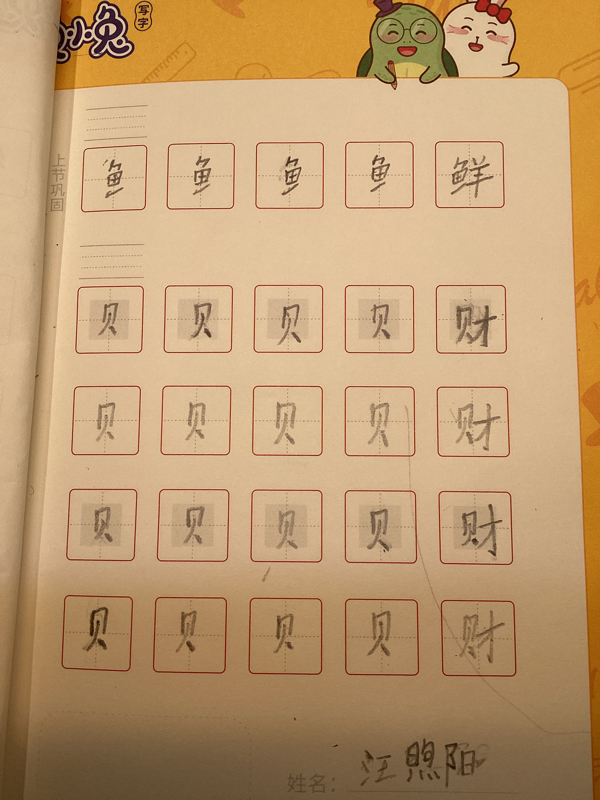 小兔
写字
上节巩固
鱼 鱼 鱼 鱼 鲜
贝 贝 贝 贝 财
贝 贝 贝 贝 财
贝 贝 贝 贝 财
贝 贝 贝 贝 财
姓名：汪煦阳